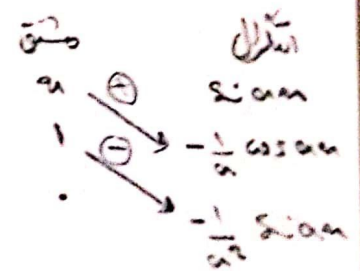 مشتق انتگرال
x ⊕ sin ax
1 ⊖ -1/a cos ax
۰ -1/a² sin ax